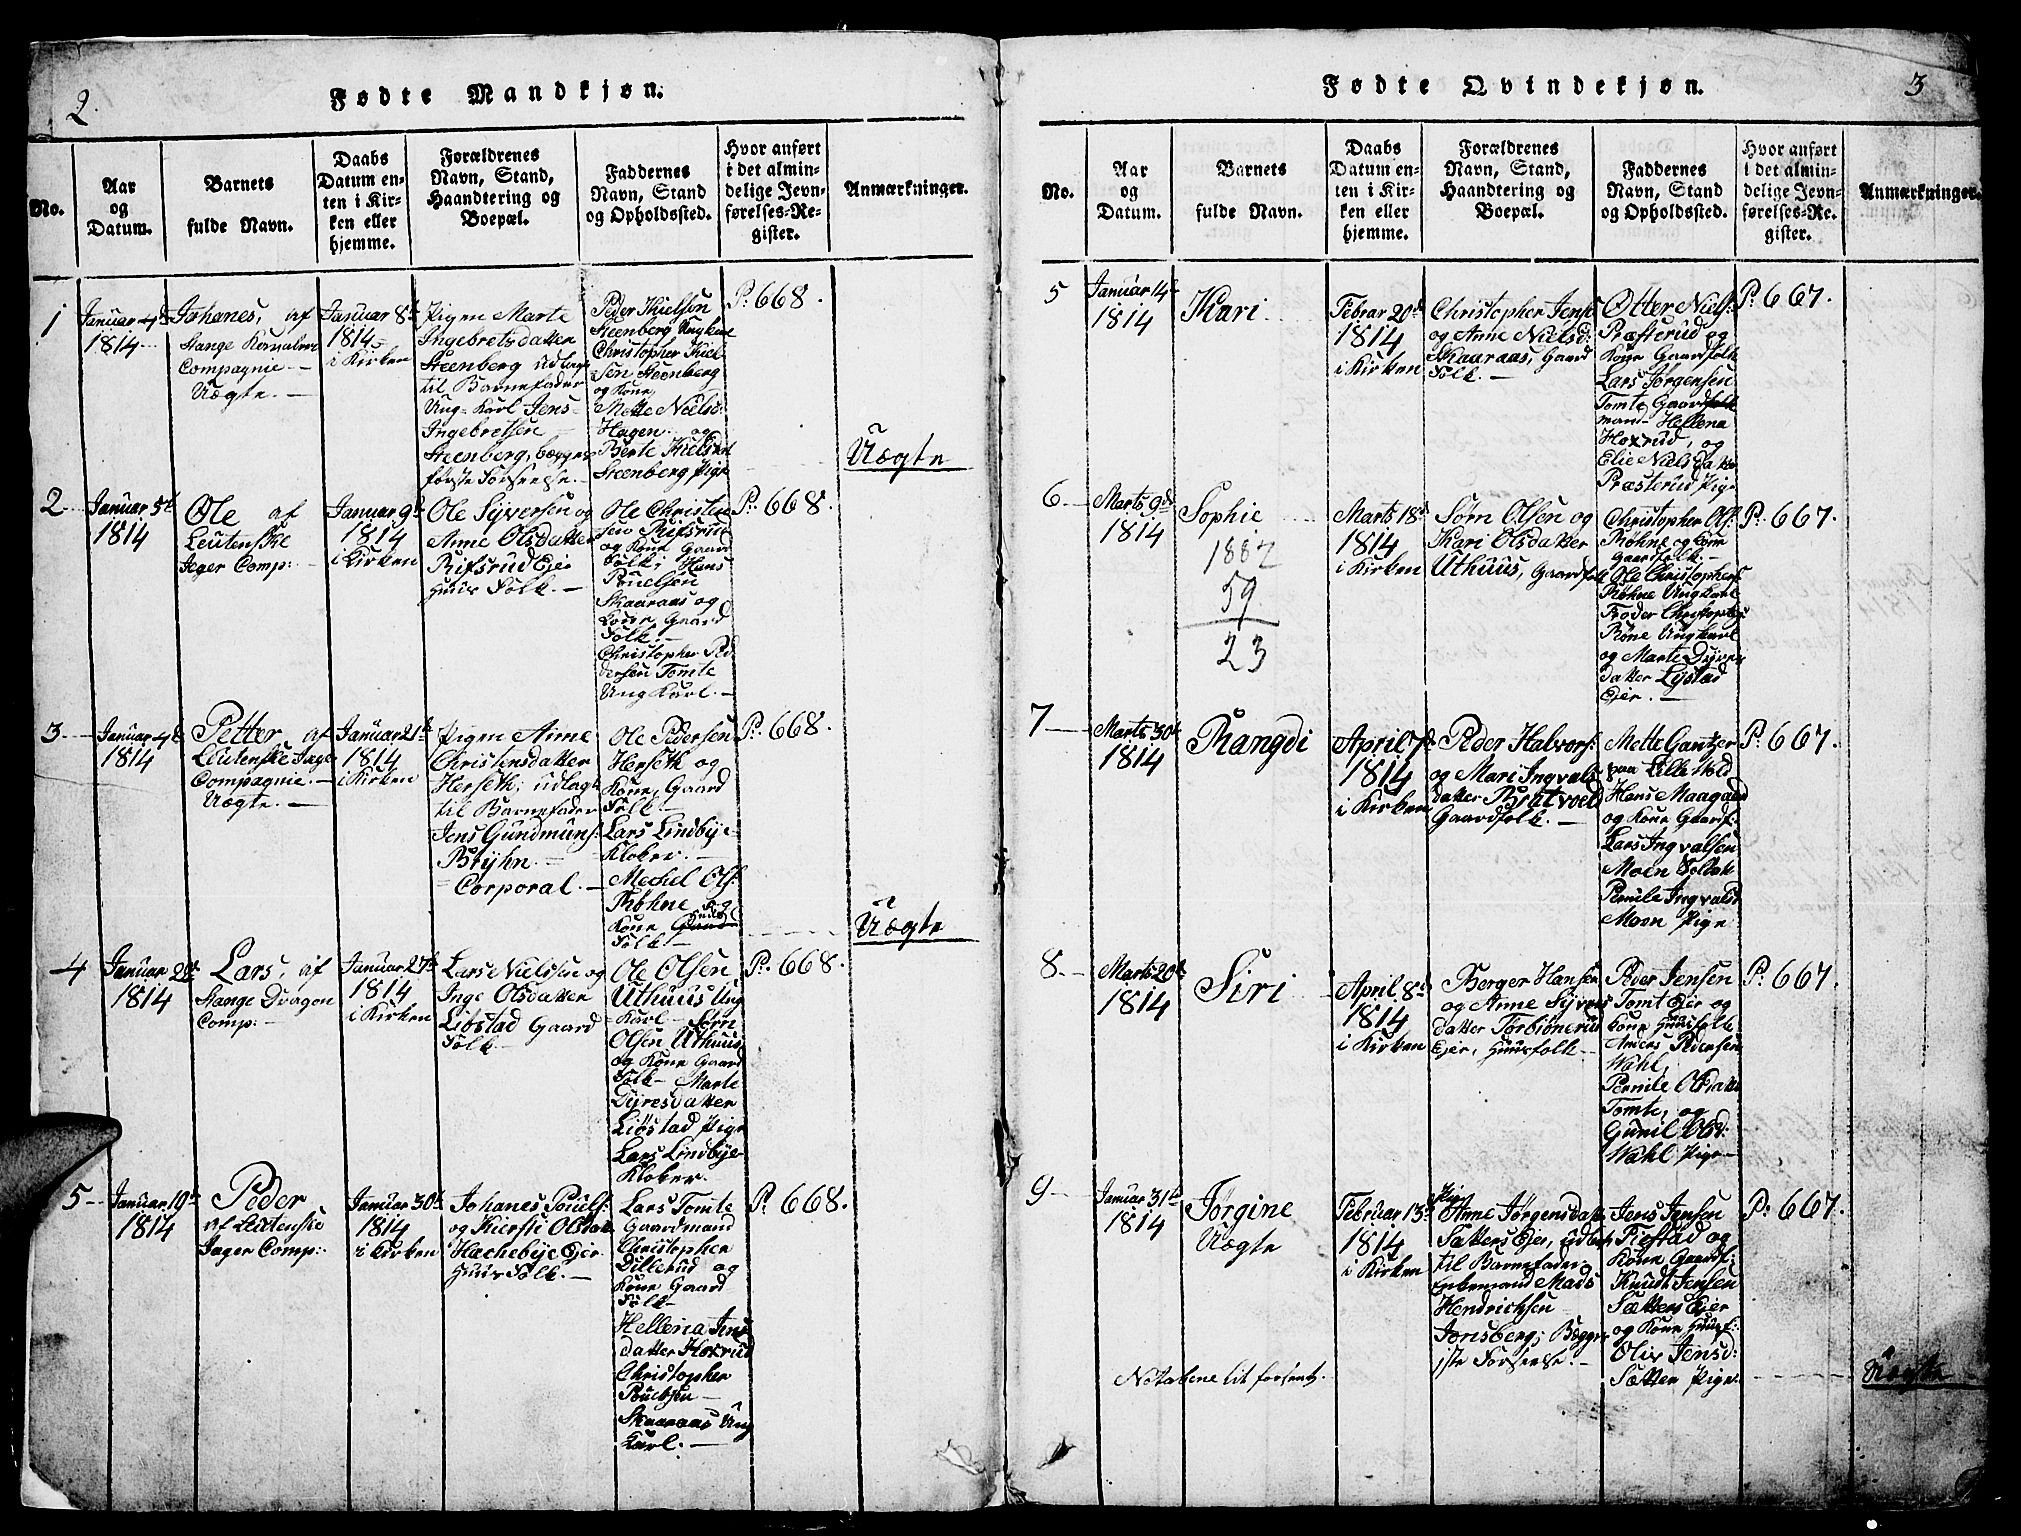 2.
Fødte Mandkjøn.
No.
Aar
og
Datum.
Barnets
fulde Navn.
Daabs
Datum en-
ten i Kir-
ken eller
hjemme.
Forældrenes
Navn, Stand,
Haandtering og
Boepæl.
Faddernes
Navn, Stand
og Opholdssted.
Hvor anført
i det almin-
delige Jevn-
førelses-Re-
gister.
Anmærkninger.
1
Januar 4d
1814
Johanes, af
Stange
Compagnie.
Uægte.
Januar 8d
1814
i Kirken
Pigen Marte
Ingebretsdatter
Steenberg udlagt
til Barnefader
Ung-Karl Jens
Ingebretsen
Steenberg, begges
første Forseelse.
Peder Kielsen
Steenberg Ungkarl
Christopher Kiel-
sen Steenberg
og Kone
Mette Nielsd:
Hagen og
Berte Kielsdat
Steenberg Pige
P: 668.
Uægte
2
Januar 5t
1814
Ole af
Leutenske
Jeger Comp:
Januar 9d
1814
i Kirken
Ole Syversen og
Anne Olsdatter
Rifsrud Ejer
Huus Folk.
Ole Christen
sen Rifsrud
og Kone Gaard
Folk; Hans
Pouelsen
Skaaraas og
Kone Gaard
Folk.
Christopher Pe-
dersen Tomte
Ung Karl.
P: 668.
3
Januar 4d
1814
Petter af
Leutenske Jeger
Compagnie.
Uægte.
Januar 21d
1814
i Kirken
Pigen Anne
Christensdatter
Herseth; udlagt
til Barnefader
Jens Gundmuns:
Bryhn.
Corporal.
Ole Pedersen
Herseth og
Kone, Gaard
Folk
Lars Lindbye-
Klober.
Mechel Ols:
Røhne og
Kone Huus
Folk
P: 668.
Uægte
4
Januar 20d
1814
Lars, af
Stange Dragon
Comp:
Januar 27d
1814
i Kirken
Lars Nielsen og
Inge Olsdatter
Liøstad Gaard
Folk.
Ole Olsen
Uthuus Ung
Karl Sørn
Olsen Uthuus
og Kone Gaard
Folk Marte
Dyresdatter
Liøstad Pige
Lars Lindbye-
Klober.
P: 668.
5
Januar 19d
1814
Peder
af Leutenske
Jager Comp:
Januar 30d
1814
i Kirken
Johanes Pouels:
og Kiersti Olsdat
Hachebye Ejer
Huus Folk.
Lars Tomte
Gaardmand
Christopher
Dillerud og
Kone Gaard
Folk
Hellena Jens
datter Hoxrud
Christopher
Pouelsen
Skaaraas Ung
Karl.
P: 668.
3
Fødte Qvindekjøn.
No.
Aar
og
Datum.
Barnets
fulde Navn.
Daabs
Datum en-
ten i Kir-
ken eller
hjemme.
Forældrenes
Navn, Stand,
Haandtering og
Boepæl.
Faddernes
Navn, Stand
og Opholdssted.
Hvor anført
i det almin-
delige Jevn-
førelses-Re-
gister.
Anmærkninger.
5
Januar 14
1814
Kari
Febrar 20d
1814
i Kirken
Christopher Jens
og Anne Nielsd:
Skaaraas, Gaard
Folk.
Otter Niels:
Præsterud og
Kone Gaardfolk
Lars Jørgensen
Tomte Gaard
mand Hellena
Hoxrud, og
Elie Nielsdatter
Præsterud Pige
P: 667.
6
Marts 9d
1814
Sophie
1882
59
23
Marts 18d
1814
i Kirken
Sørn Olsen og
Kari Olsdatter
Uthuus, Gaardfolk
Christopher Ols:
Røhne og Kone
Gaardfolk.
Ole Christophers:
Røhne Ungkarl
Peder Christophers
Røne Ungkarl
og Marte Dyres
datter Lystad
Ejer.
P: 667.
7
Marts 30d
1814
Rangdi
April 7d
1814
i Kirken
Peder Halvors:
og Mari Ingvals
datter Bratvold
Gaardfolk.
Mette Gantzer
paa Lille Vold
Hans Maagaard
og Kone Gaardf:
Lars Ingvalsen
Moen Soldat
Pernile Ingvalsd
Moen Pige
P: 667.
8.
Marts 20d
1814
Siri
April 8d
1814
i Kirken
Berger Hansen
og Anne Syvers
datter Torbiønsrud
Ejer, Huusfolk
Peder Jensen
Tomt Ejer og
Kone Huusfolk
Anders Pedersen
Wahl,
Pernile Olsdatter
Tomte, og
Gunil Olsd:
Wahl Pige
P: 667.
9
Januar 31d
1814
Jørgine
Uægte
Februar 13d
1814
i Kirken
Pige
Anne Jørgensdat
Sætters Ejer, udlagt
til Barnefader
Enkemand Mads
Hendrichsen
Jonsberg; Begges
1ste Forseelse.
Jens Jensen
Fiestad og
Kone Gaardf:
Knudt Jensen
Sætters Ejer
og Kone Huusf:
Olie Jensd:
Sætter Pige
P: 667.
Notabene lit forsent.
Uægte